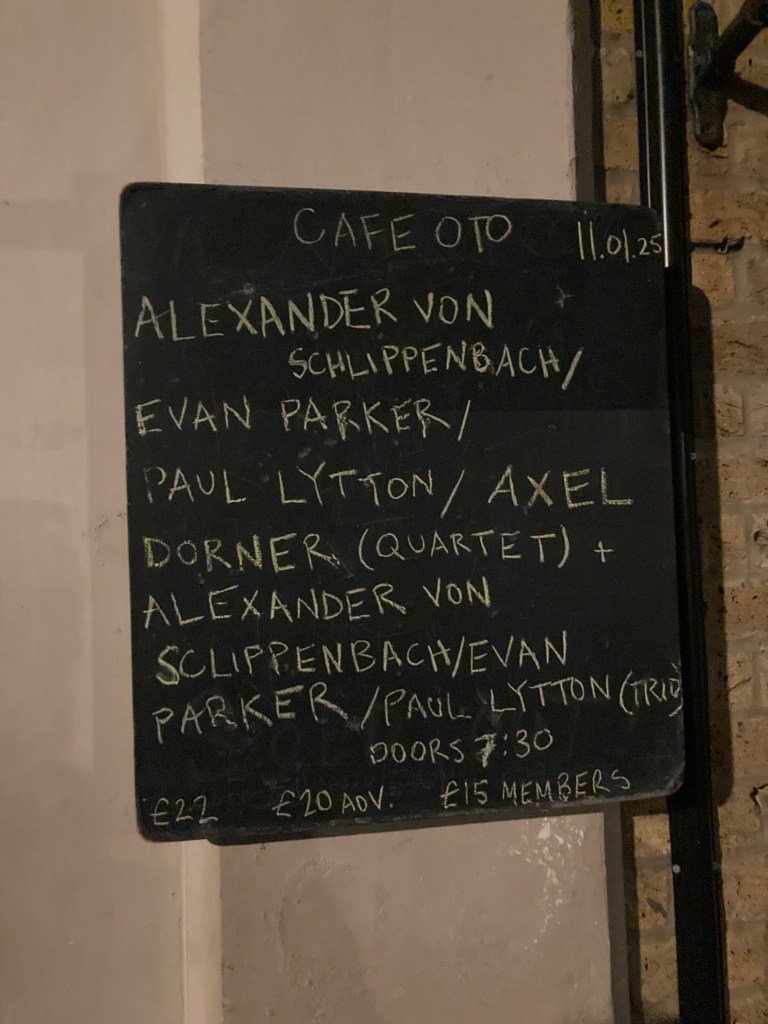 CAFE OTO 11.01.25
ALEXANDER VON
SCHLIPPENBACH/
EVAN PARKER/
PAUL LYTTON/ AXEL
DORNER (QUARTET) +
ALEXANDER VON
SCLIPPENBACH/EVAN
PARKER/PAUL LYTTON (TRIO)
DOORS 7:30
£22 £20 ADV. £15 MEMBERS